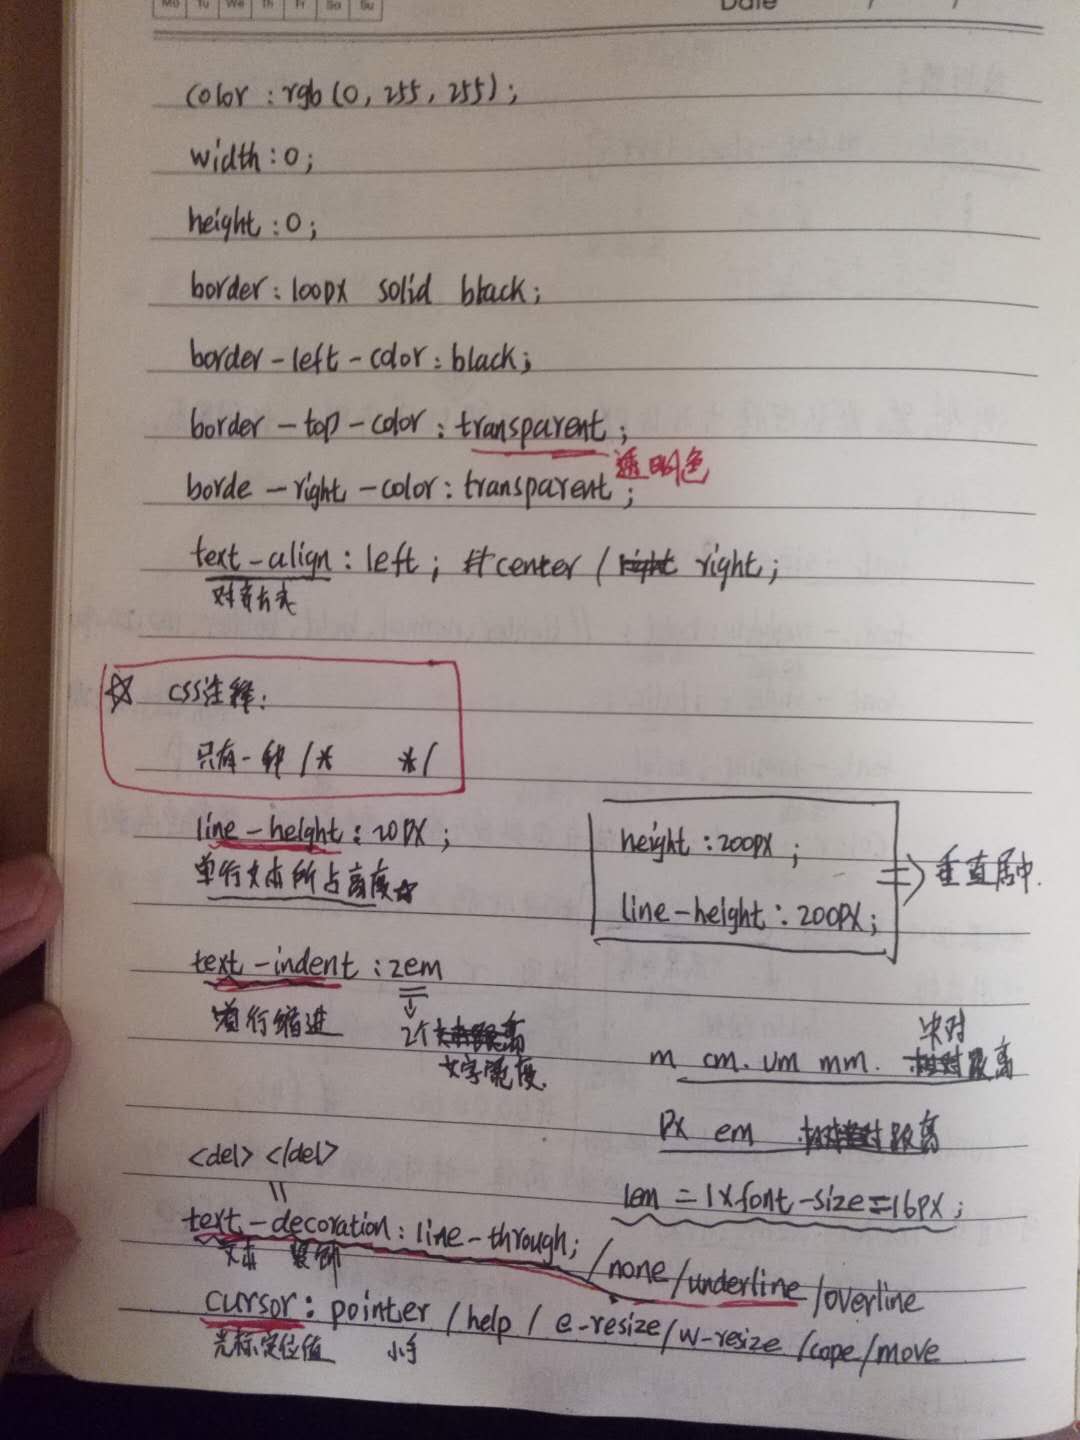 Mo Tu We Th Fr Sa Su
Date / /
color : rgb (0, 255, 255) ;
width : 0 ;
height : 0 ;
border : 100px solid black ;
border-left-color : black ;
border-top-color : transparent ;
透明色
borde-right-color : transparent ;
text-align : left ; #center / right ;
对齐方式
☆ CSS注释:
只有一种 /* */
line-height : 20px ;
单行文本所占高度☆
height : 200px ;
line-height : 200px ;
⇒ 垂直居中.
text-indent : 2em
首行缩进
2个
文字宽度.
m cm. um mm. 决对距离
px em 距离
<del> </del>
1em = 1×font-size = 16px ;
text-decoration : line-through ; / none / underline / overline
文本 装饰
cursor : pointer / help / e-resize / w-resize / cope / move
光标定位值 小手